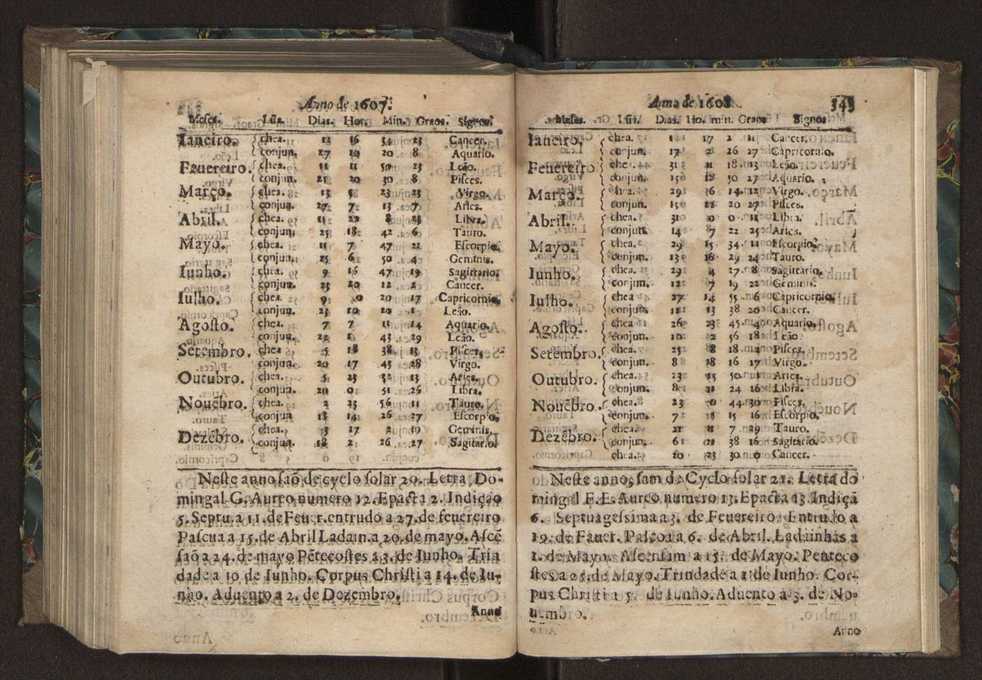 Anno de 1607.
Meses. Lũa. Dias. Hor. Min. Graos. Signos.
Ianeiro. chea. 12 16 54 23 Cancer.
conjun. 20 8 Aquario.
Feuereiro. chea. 11 11 50 23 Leão.
conjun. 25 20 30 8 Pisces.
Março. chea. 13 5 23 23 Virgo.
conjun. 27 7 13 7 Aries.
Abril. chea. 11 8 Libra.
conjun. 25 18 42 6 Tauro.
Mayo. chea. 11 7 47 21 Escorpio.
conjun. 25 6 50 4 Geminis.
Iunho. chea. 9 16 47 19 Sagittario.
conjun. 23 20 12 2 Cancer.
Iulho. chea. 9 0 20 17 Capricornio.
conjun. 23 10 20 1 Leão.
Agosto. chea. 7 7 11 14 Aquario.
conjun. 43 29 Leão.
Setembro. chea. 5 18 38 13 Pisces.
conjun. 20 17 45 28 Virgo.
Outubro. chea. 5 23 52 13 Aries.
conjun. 20 0 51 26 Libra.
Nouebro. chea. 3 23 56 11 Tauro.
conjun. 18 14 26 27 Escorpio.
Dezẽbro. chea. 3 17 2 10 Geminis.
conjun. 18 2 26 27 Sagitario.
Neste anno saõ de cyclo solar 20. Letra Do-
mingal G. Aureo numero 12. Epacta 2. Indição
5. Septu. a 11. de Feuer. entrudo a 27. de feuereiro
Pascua a 15. de Abril Ladain. a 20. de mayo. Ascẽ
saõ a 24. de mayo Pẽtecostes a 3. de Iunho. Trin
dade a 10 de Iunho. Corpus Christi a 14. de Iu-
nho. Aduento a 2. de Dezembro.
Anno
Anno de 1608. 343
Meses. Lũi. Dias. Ho. min. Graos Signos
Ianeiro. chea. 17 2 Cancer.
conjun. 26 27 Capricornio.
Feuereiro chea. 31 18 Leão.
conjun. 30 27 Aquario.
Março. chea. 29 6 14 12 Virgo.
conjun. 20 27 Pisces.
Abril. chea. 31 0 0 11 Libra.
conjun. 14 7 22 25 Aries.
Mayo. chea. 29 15 34 11 Escorpio.
conjun. 13 16 29 24 Tauro.
Iunho. chea. 29 4 17 8 Sagitario.
conjun. 12 7 19 22 Geminis.
Iulho. chea 27 14 55 6 Capricornio
conjun. 13 38 20 Cancer.
Agosto. chea. 26 23 45 4 Aquario.
conjun. 10 2 56 18 Leão
Setembro. chea. 25 8 18 Pisces.
conjun. 8 18 16 17 Virgo.
Outubro. chea. 23 50 Aries.
conjun. 8 21 24 16 Libra.
Nouẽbro. chea. 23 0 44 30 Pisces.
conjun. 7 15 16 Escorpio.
Dezẽbro. chea. 21 7 29 Tauro.
conjun. 6 38 16 Sagitario.
chea. 10 23 30 0 Cancer.
Neste anno, sam da Cyclo solar 21. Letra do
mingal F. E. Aureo numero 13. Epacta 13. Indiçã
6. Septuagessima a 3. de Feuereiro. Entrudo a
19. de Feuer. Pascoa a 6. de Abril. Ladainhas a
1. de Mayo. Ascensam a 15. de Mayo. Penteco
stes a 25. de Mayo. Trindade a 1. de Iunho. Cor-
pus Christi a 5. de Iunho. Aduento a 3. de No-
uembro.
Anno